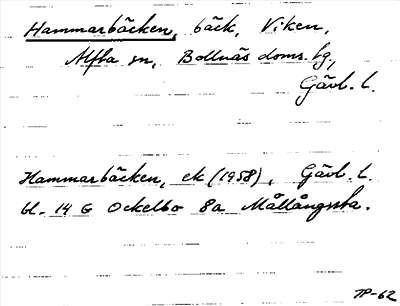 Hammarbäcken, bäck, Viken,
Alfta sn, Bollnäs doms. lg,
Gävl. l.
Hammarbäcken, ek (1958), Gävl. l.
bl. 14 G Ockelbo 8a Mållångssta.
TP-62